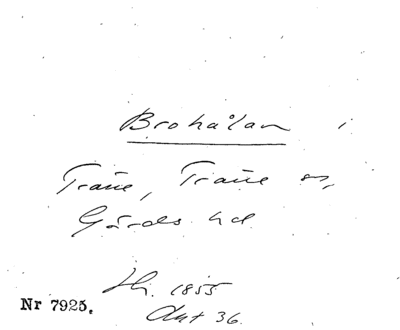 Brohålan i
Träne, Träne sn,
Gärds hd
1855
Akt 36.
Nr 7925.